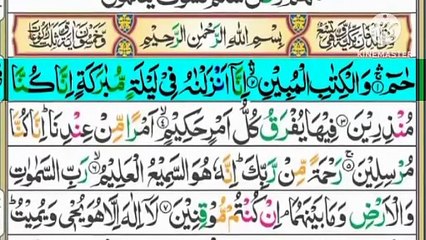 بِسْمِ اللّٰهِ الرَّحْمٰنِ الرَّحِيْمِ
KINEMASTER
حٰمٓ ۚ﴿۱﴾ وَالْكِتٰبِ الْمُبِيْنِ ۙ﴿۲﴾ اِنَّاۤ اَنْزَلْنٰهُ فِيْ لَيْلَةٍ مُّبٰرَكَةٍ اِنَّا كُنَّا
مُنْذِرِيْنَ ﴿۳﴾ فِيْهَا يُفْرَقُ كُلُّ اَمْرٍ حَكِيْمٍ ۙ﴿۴﴾ اَمْرًا مِّنْ عِنْدِنَا ؕ اِنَّا كُنَّا
مُرْسِلِيْنَ ۚ﴿۵﴾ رَحْمَةً مِّنْ رَّبِّكَ ؕ اِنَّهٗ هُوَ السَّمِيْعُ الْعَلِيْمُ ۙ﴿۶﴾ رَبِّ السَّمٰوٰتِ
وَالْاَرْضِ وَمَا بَيْنَهُمَا ۘ اِنْ كُنْتُمْ مُّوْقِنِيْنَ ﴿۷﴾ لَاۤ اِلٰهَ اِلَّا هُوَ يُحْيٖ وَيُمِيْتُ ؕ